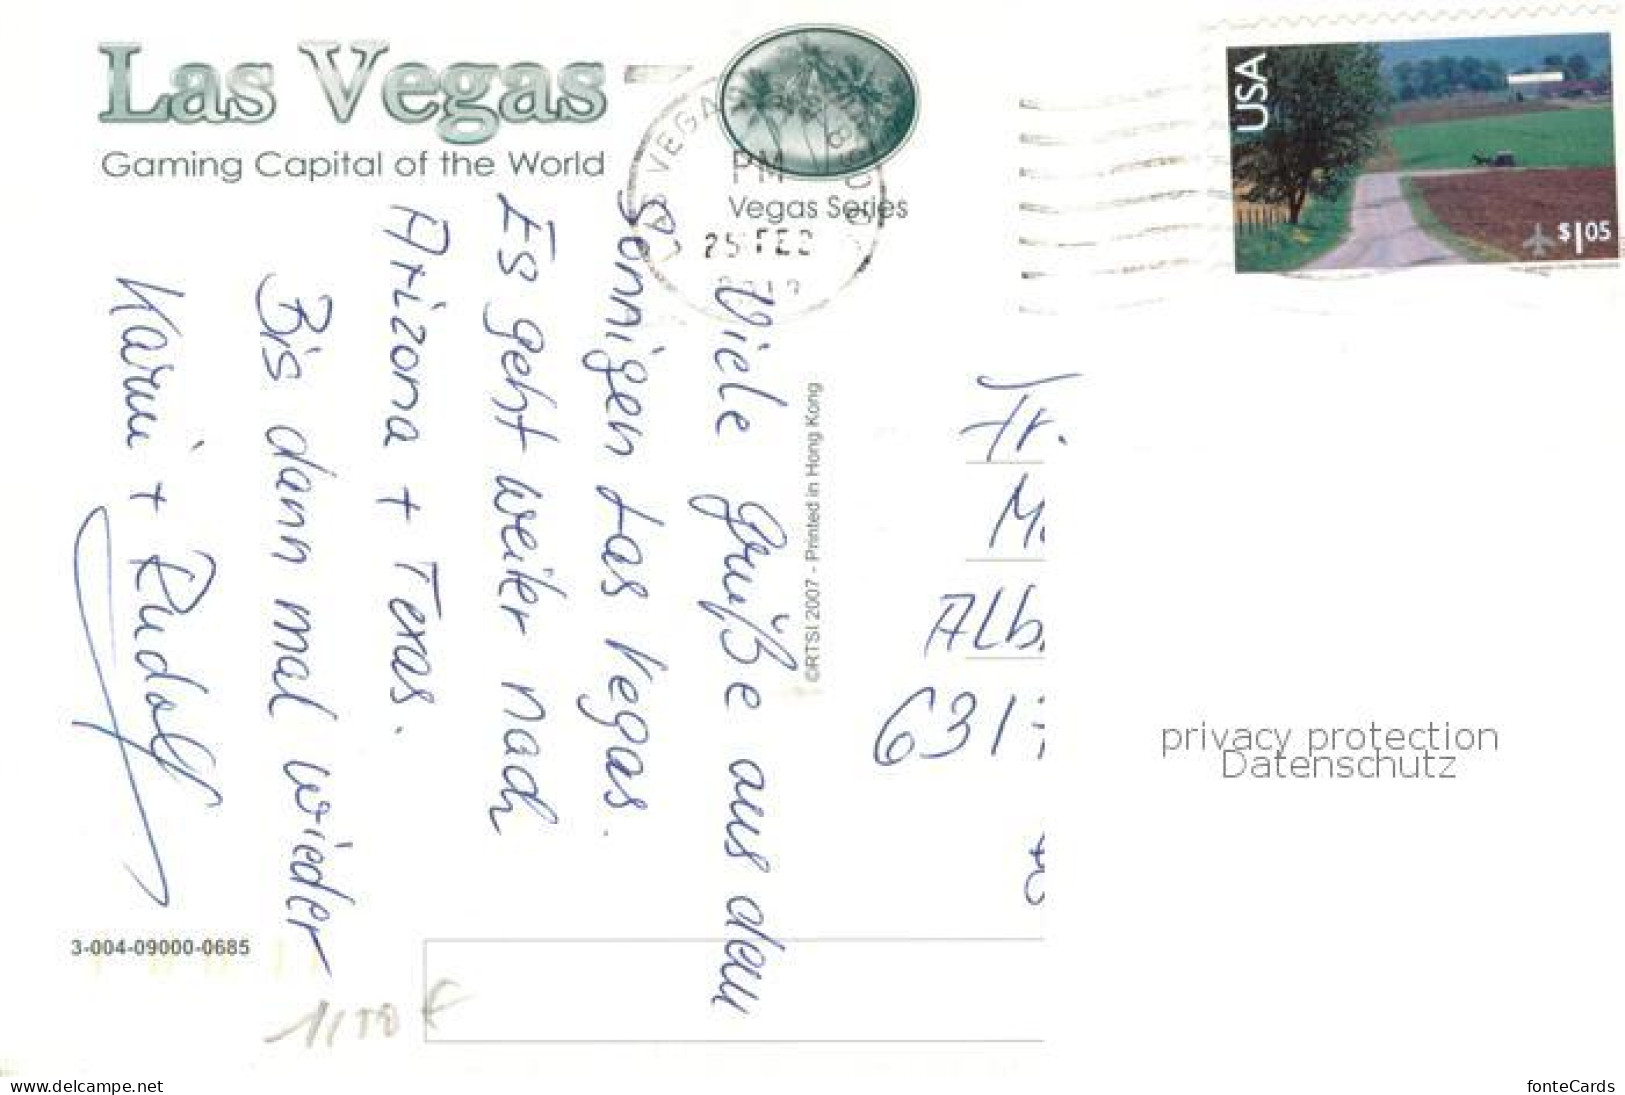 Las Vegas
Gaming Capital of the World
Vegas Series
PM
25 FEB
USA
$1.05
Viele Grüße aus dem
sonnigen Las Vegas.
Es geht weiter nach
Arizona + Texas.
Bis dann mal wieder
Karin + Rudolf
©RTSI 2007 - Printed in Hong Kong
Fr.
M
Alb
631
privacy protection
Datenschutz
3-004-09000-0685
www.delcampe.net
fonteCards